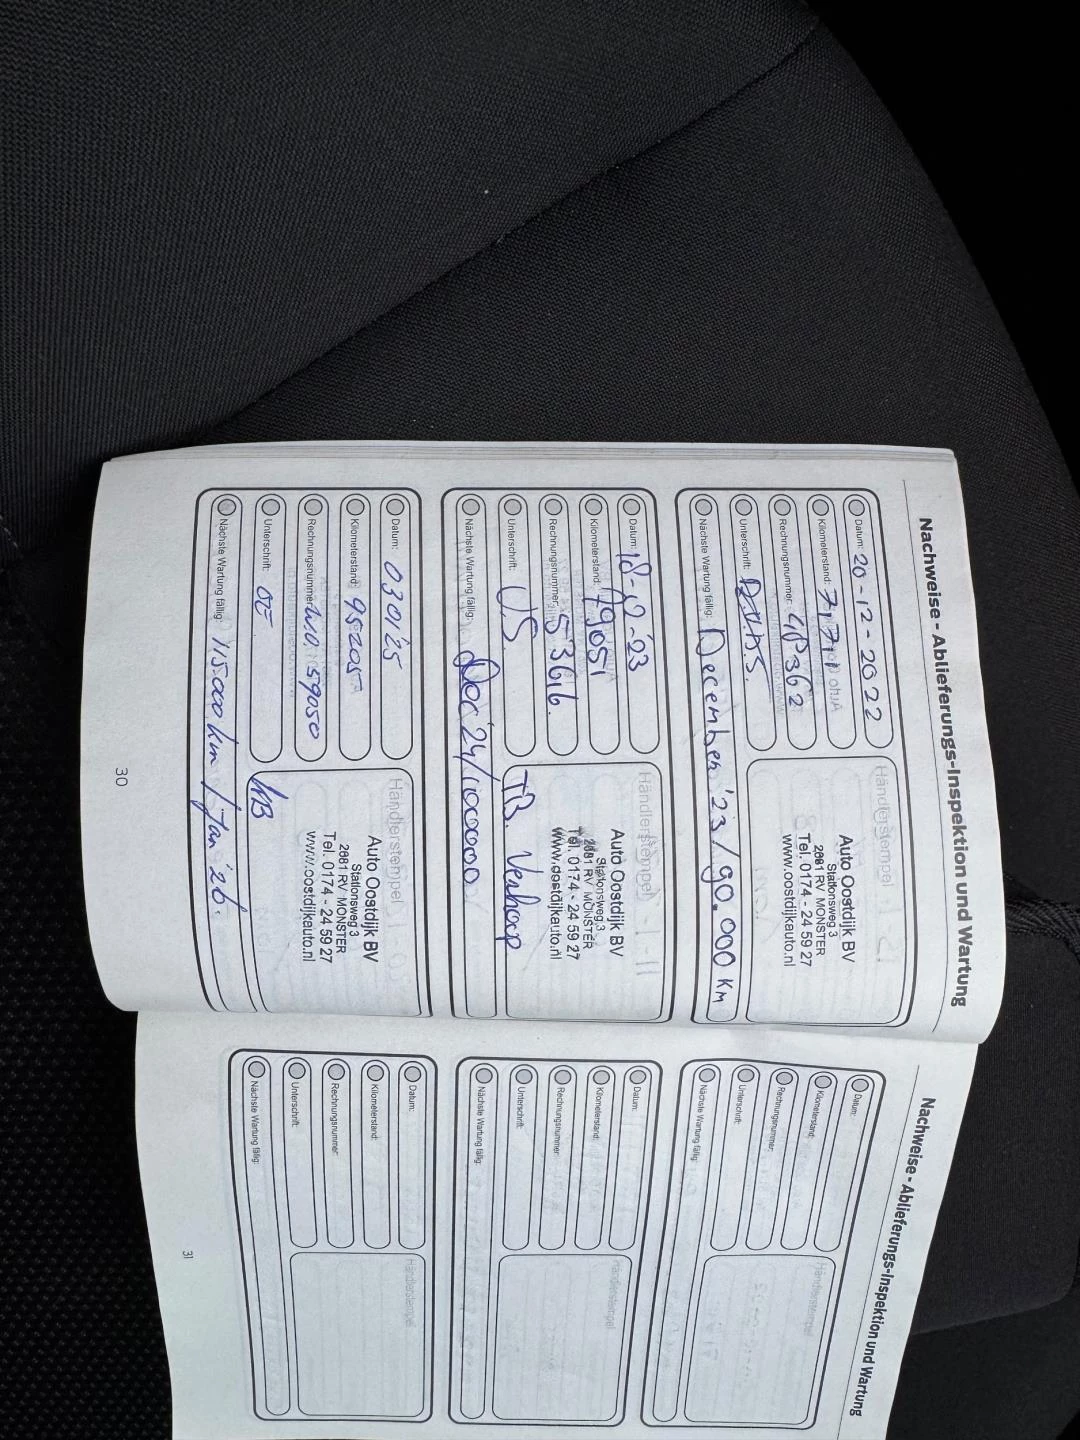 Nachweise - Ablieferungs-Inspektion und Wartung
Datum: 20-12-2022
Kilometerstand:
Rechnungsnummer: 48362
Unterschrift:
Händlerstempel
Auto Oostdijk BV
Stationsweg 3
2681 RV MONSTER
Tel. 0174 - 24 59 27
www.oostdijkauto.nl
Nächste Wartung fällig: December '23 / 90.000 Km
Datum: 18-12-'23
Kilometerstand: 79051
Rechnungsnummer: 53616
Unterschrift: US
Händlerstempel
Auto Oostdijk BV
Stationsweg 3
2681 RV MONSTER
Tel. 0174 - 24 59 27
www.oostdijkauto.nl
TB. Verhoop
Nächste Wartung fällig: Dec '24/100000
Datum: 0301'25
Kilometerstand: 95205
Rechnungsnummer: WO. 59050
Unterschrift:
Händlerstempel
Auto Oostdijk BV
Stationsweg 3
2681 RV MONSTER
Tel. 0174 - 24 59 27
www.oostdijkauto.nl
Nächste Wartung fällig: 115000 km / Jan '26.
30
Nachweise - Ablieferungs-Inspektion und Wartung
Datum:
Kilometerstand:
Rechnungsnummer:
Unterschrift:
Händlerstempel
Nächste Wartung fällig:
Datum:
Kilometerstand:
Rechnungsnummer:
Unterschrift:
Händlerstempel
Nächste Wartung fällig:
Datum:
Kilometerstand:
Rechnungsnummer:
Unterschrift:
Händlerstempel
Nächste Wartung fällig:
31